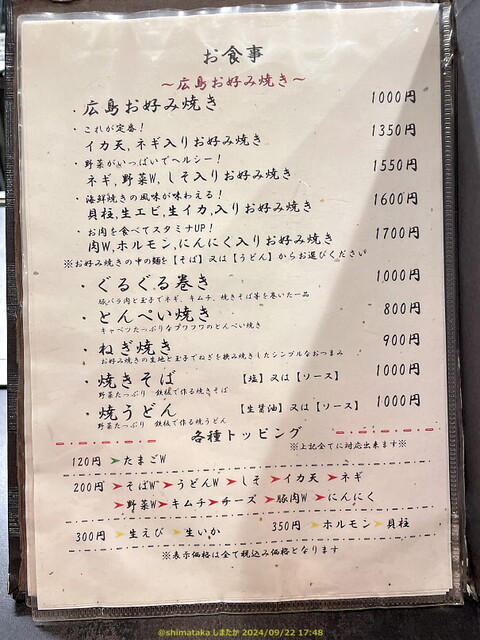 お食事
～広島お好み焼き～
・広島お好み焼き 1000円
・これが定番！
イカ天,ネギ入りお好み焼き 1350円
・野菜がいっぱいでヘルシー！
ネギ,野菜W,しそ入りお好み焼き 1550円
・海鮮焼きの風味が味わえる！
貝柱,生エビ,生イカ,入りお好み焼き 1600円
・お肉を食べてスタミナUP！
肉W,ホルモン,にんにく入りお好み焼き 1700円
※お好み焼きの中の麺を【そば】又は【うどん】からお選びください
・ぐるぐる巻き 1000円
豚バラ肉と玉子でネギ、キムチ、焼きそば等を巻いた一品
・とんぺい焼き 800円
キャベツたっぷりなフワフワのとんぺい焼き
・ねぎ焼き 900円
お好み焼きの生地と玉子でねぎを挟み焼きしたシンプルなおつまみ
・焼きそば 【塩】又は【ソース】 1000円
野菜たっぷり 鉄板で作る焼きそば
・焼うどん 【生醤油】又は【ソース】 1000円
野菜たっぷり 鉄板で作る焼うどん
各種トッピング
※上記全てに対応出来ます※
120円 ➤たまごW
200円 ➤そばW ➤うどんW ➤しそ ➤イカ天 ➤ネギ
➤野菜W ➤キムチ ➤チーズ ➤豚肉W ➤にんにく
300円 ➤生えび ➤生いか 350円 ➤ホルモン ➤貝柱
※表示価格は全て税込み価格となります
@shimataka しまたか 2024/09/22 17:48